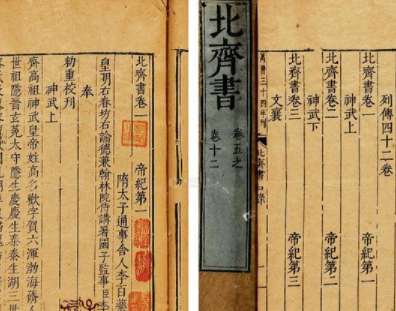 北齊書卷一 帝紀第一
隋太子通事舍人李百藥
皇明右春坊右諭德兼翰林院侍講署國子監事臣李
奉
勅重校刊
神武上
齊高祖神武皇帝姓高名歡字賀六渾渤海蓨人
世祖隱晉玄菟太守隱生慶慶生泰泰生湖三世
列傳四十二卷
北齊書卷一 帝紀第一
神武上
北齊書卷二 帝紀第二
神武下
北齊書卷三 帝紀第三
文襄
萬曆三十四年刊
北齊書目錄
北齊書
卷五之
卷十二